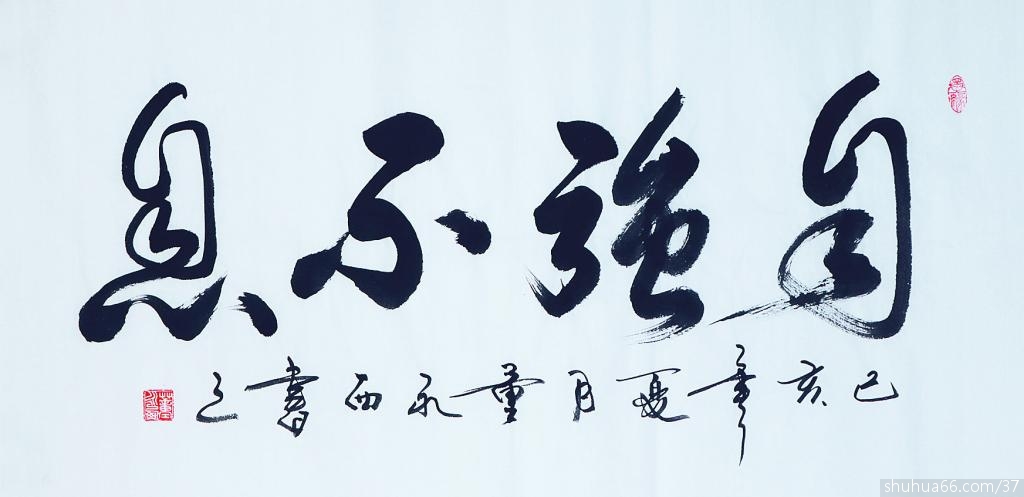 自强不息
己亥年夏月董永西書之
shuhua66.com/37